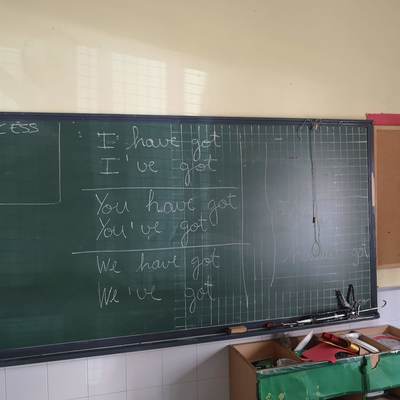 I have got
I've got
You have got
You've got
We have got
We've got
got